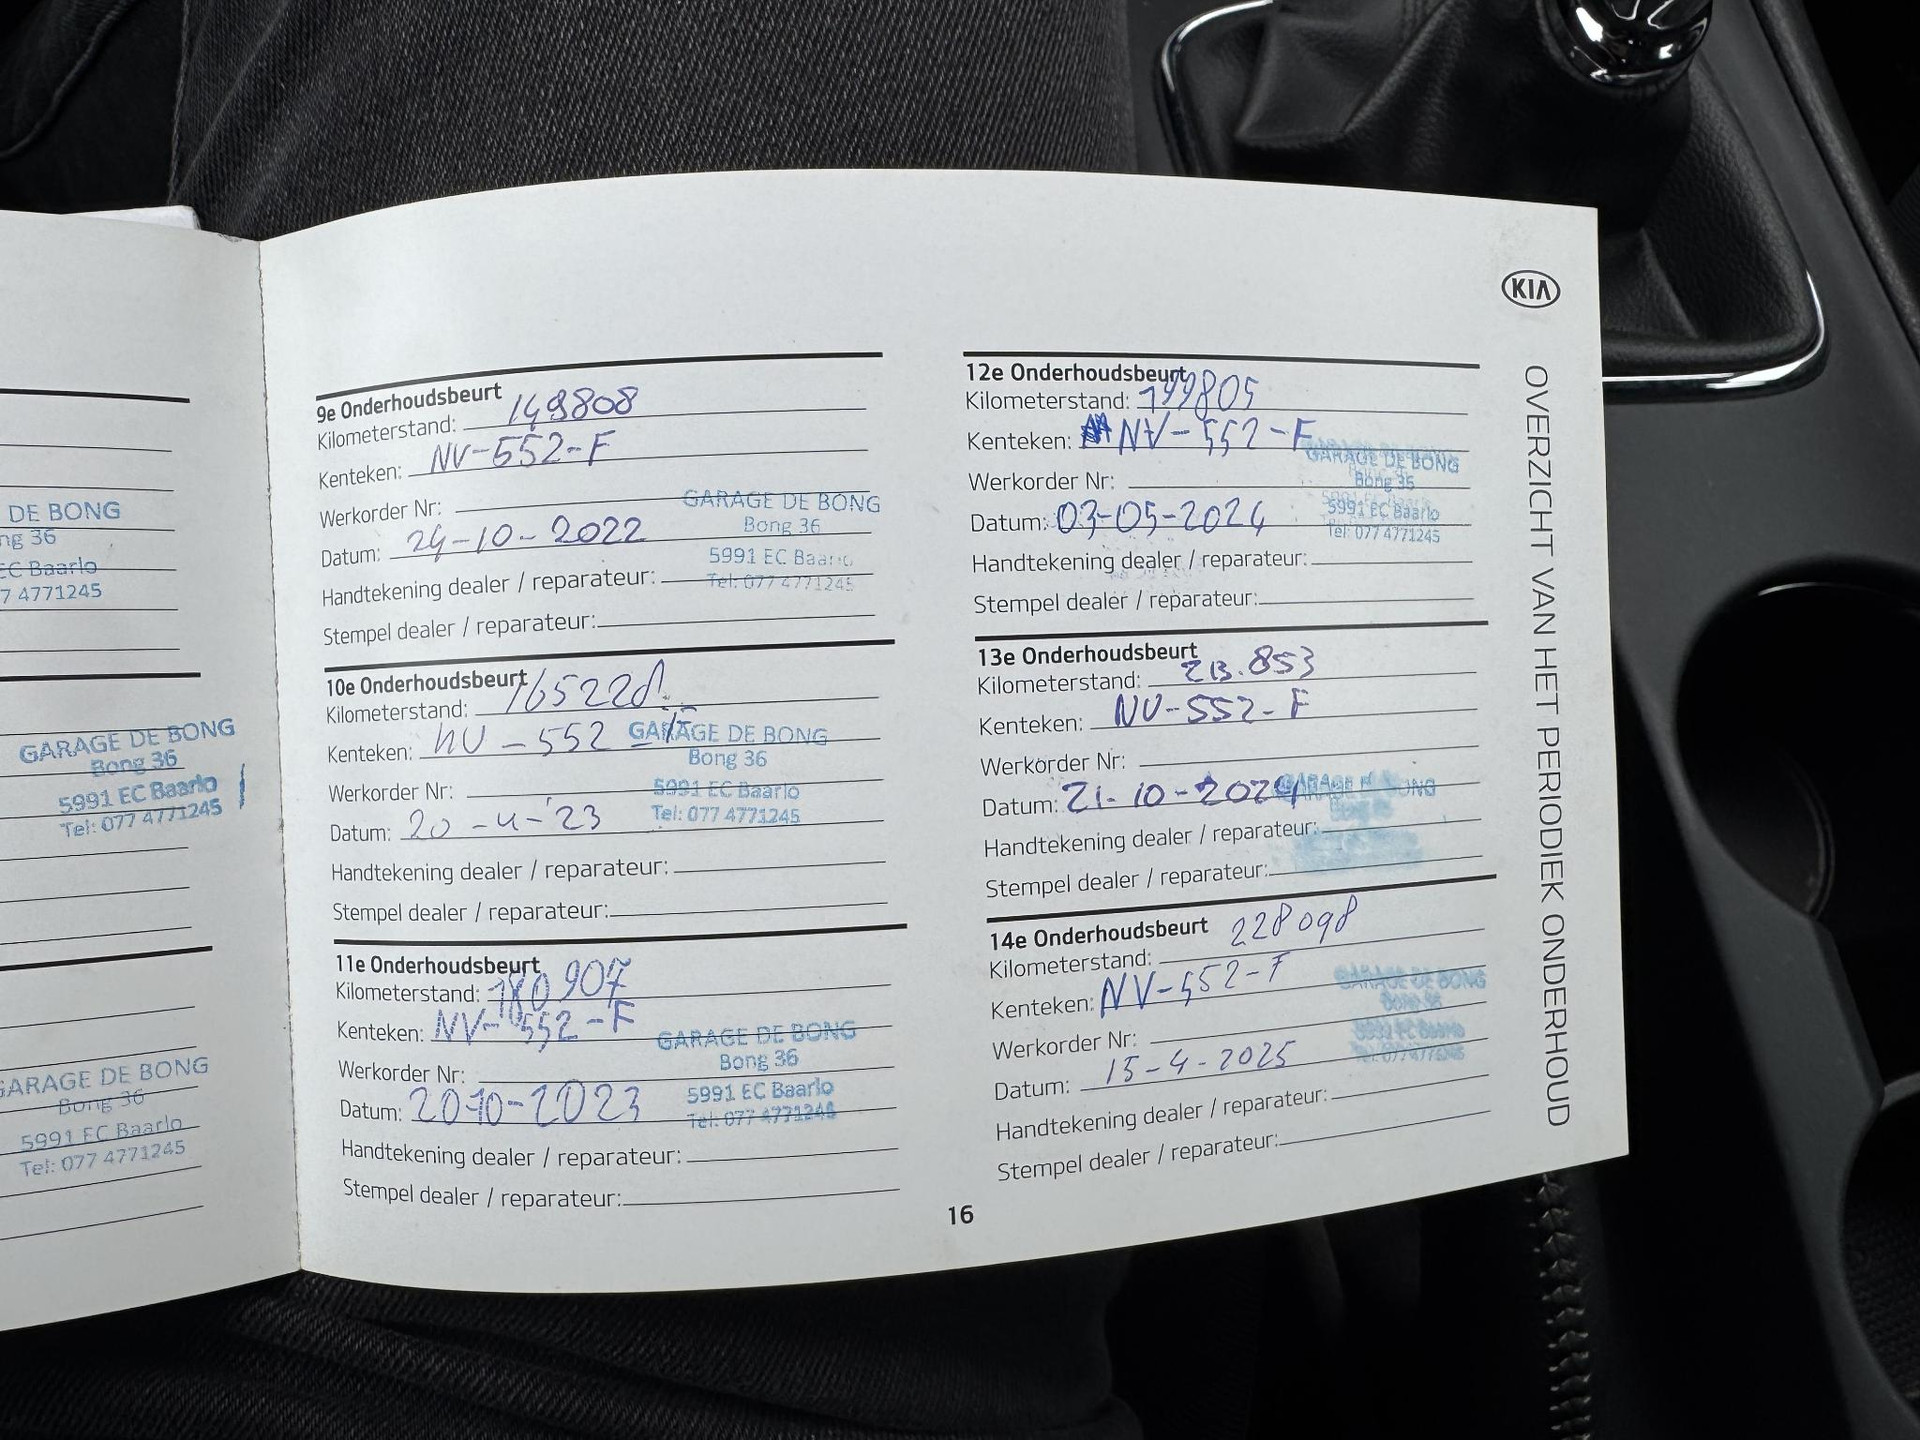 DE BONG
ng 36
EC Baarlo
7 4771245
GARAGE DE BONG
Bong 36
5991 EC Baarlo
Tel: 077 4771245
GARAGE DE BONG
Bong 36
5991 EC Baarlo
Tel: 077 4771245
9e Onderhoudsbeurt
Kilometerstand: 149808
Kenteken: NV-552-F
Werkorder Nr:
Datum: 24-10-2022
Handtekening dealer / reparateur:
Stempel dealer / reparateur:
GARAGE DE BONG
Bong 36
5991 EC Baarlo
Tel: 077 4771245
10e Onderhoudsbeurt
Kilometerstand: 165228
Kenteken: NV-552-F
Werkorder Nr:
Datum: 20-4-'23
Handtekening dealer / reparateur:
Stempel dealer / reparateur:
GARAGE DE BONG
Bong 36
5991 EC Baarlo
Tel: 077 4771245
11e Onderhoudsbeurt
Kilometerstand: 180907
Kenteken: NV-552-F
Werkorder Nr:
Datum: 20-10-2023
Handtekening dealer / reparateur:
Stempel dealer / reparateur:
GARAGE DE BONG
Bong 36
5991 EC Baarlo
Tel: 077 4771245
12e Onderhoudsbeurt
Kilometerstand: 199805
Kenteken: NV-552-F
Werkorder Nr:
Datum: 03-05-2024
Handtekening dealer / reparateur:
Stempel dealer / reparateur:
GARAGE DE BONG
Bong 36
5991 EC Baarlo
Tel: 077 4771245
13e Onderhoudsbeurt
Kilometerstand: 213.853
Kenteken: NV-552-F
Werkorder Nr:
Datum: 21-10-2024
Handtekening dealer / reparateur:
Stempel dealer / reparateur:
GARAGE DE BONG
14e Onderhoudsbeurt
Kilometerstand: 228098
Kenteken: NV-552-F
Werkorder Nr:
Datum: 15-4-2025
Handtekening dealer / reparateur:
Stempel dealer / reparateur:
GARAGE DE BONG
Bong 36
5991 EC Baarlo
Tel: 077 4771245
16
KIA
OVERZICHT VAN HET PERIODIEK ONDERHOUD